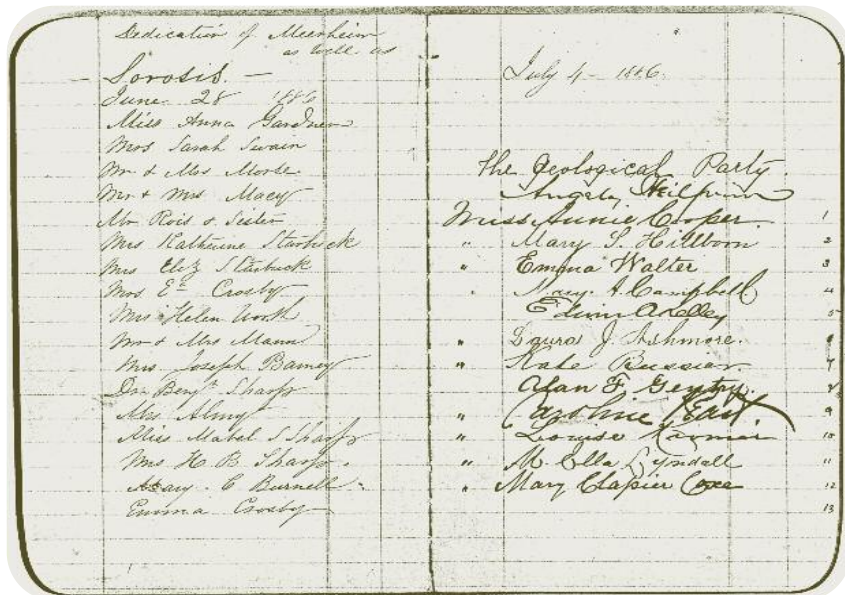 Dedication of Meerheim
as well as
— Sorosis. —
June 28 1886
Miss Anna Gardner
Mrs Sarah Swain
Mr & Mrs Morse
Mr & Mrs Macy
Mr Rois & Sister
Mrs Katherine Starbuck
Mrs Eliz Starbuck
Mrs E Crosby
Mrs Helen Worth
Mr & Mrs Mann
Mrs Joseph Barney
Dr. Benjn Sharp
Mrs Almy
Miss Mabel S Sharp
Mrs H. B. Sharp.
Mary C Burnell
Emma Crosby
July 4 - 1886.
The Geological Party.
Angelo Heilprin
Miss Annie Cooper. 1
" Mary S. Hillborn 2
" Emma Walter 3
" Mary A. Campbell 4
Edwin 5
" Laura J. Ashmore. 6
" Kate 7
Alan F. Gentry. 8
" Caroline East 9
" Louise 10
" M. Ella Lyndall 11
" Mary Clapier Coxe 12
13